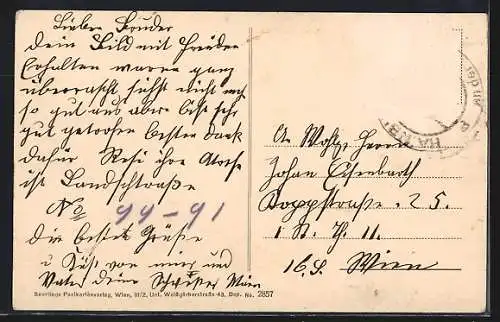 Lieber Bruder
Dein Bild mit Freuden
Erhalten waren ganz
überrascht siehst nicht
so gut aus aber bist sehr
gut getroffen besten dank
dafür Resi ihre Adresse
ist Landstraße
No 99-91
die besten Grüße
u Küst von mir und
Vater deine Schwester
An Wohlg. Herrn
Johan Eisenbarth
Koppstraße 25.
1 St. Th. 11.
16. B. Wien
Postkartenverlag, Wien, III/2, Unt. Weißgärberstraße 48, Dep. No. 2857